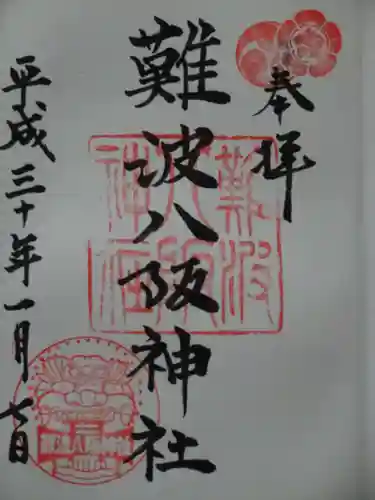 奉拝
難波八阪神社
平成三十年一月七日
難波
八阪
神社